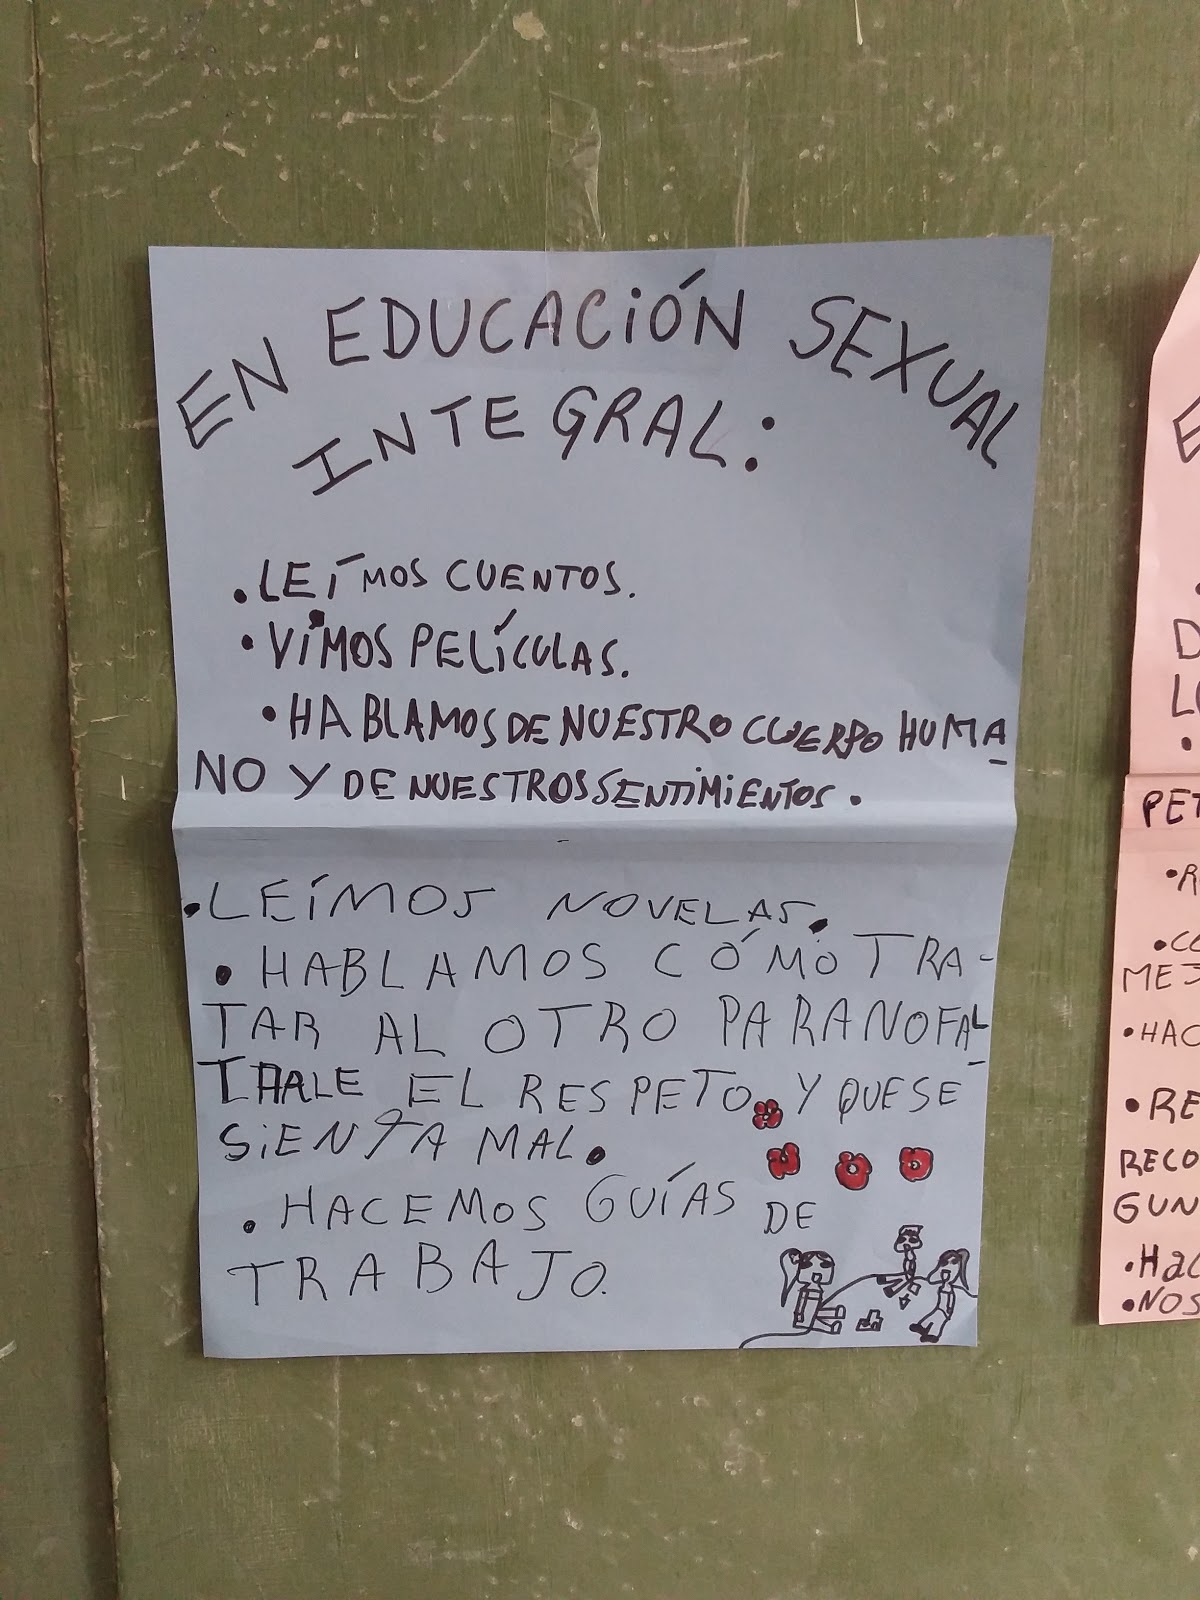 EN EDUCACIÓN SEXUAL
INTEGRAL:
.LEÍMOS CUENTOS.
•VIMOS PELÍCULAS.
•HABLAMOS DE NUESTRO CUERPO HUMA
NO Y DE NUESTROS SENTIMIENTOS.
.LEÍMOS NOVELAS.
•HABLAMOS CÓMO TRA-
TAR AL OTRO PARA NO FAL
TARLE EL RESPETO Y QUE SE
SIENTA MAL.
.HACEMOS GUÍAS DE
TRABAJO.
E
D
L
•
PET
•R
•CO
MEJ
•HAC
•RE
RECO
GUN
•HaC
•NOS